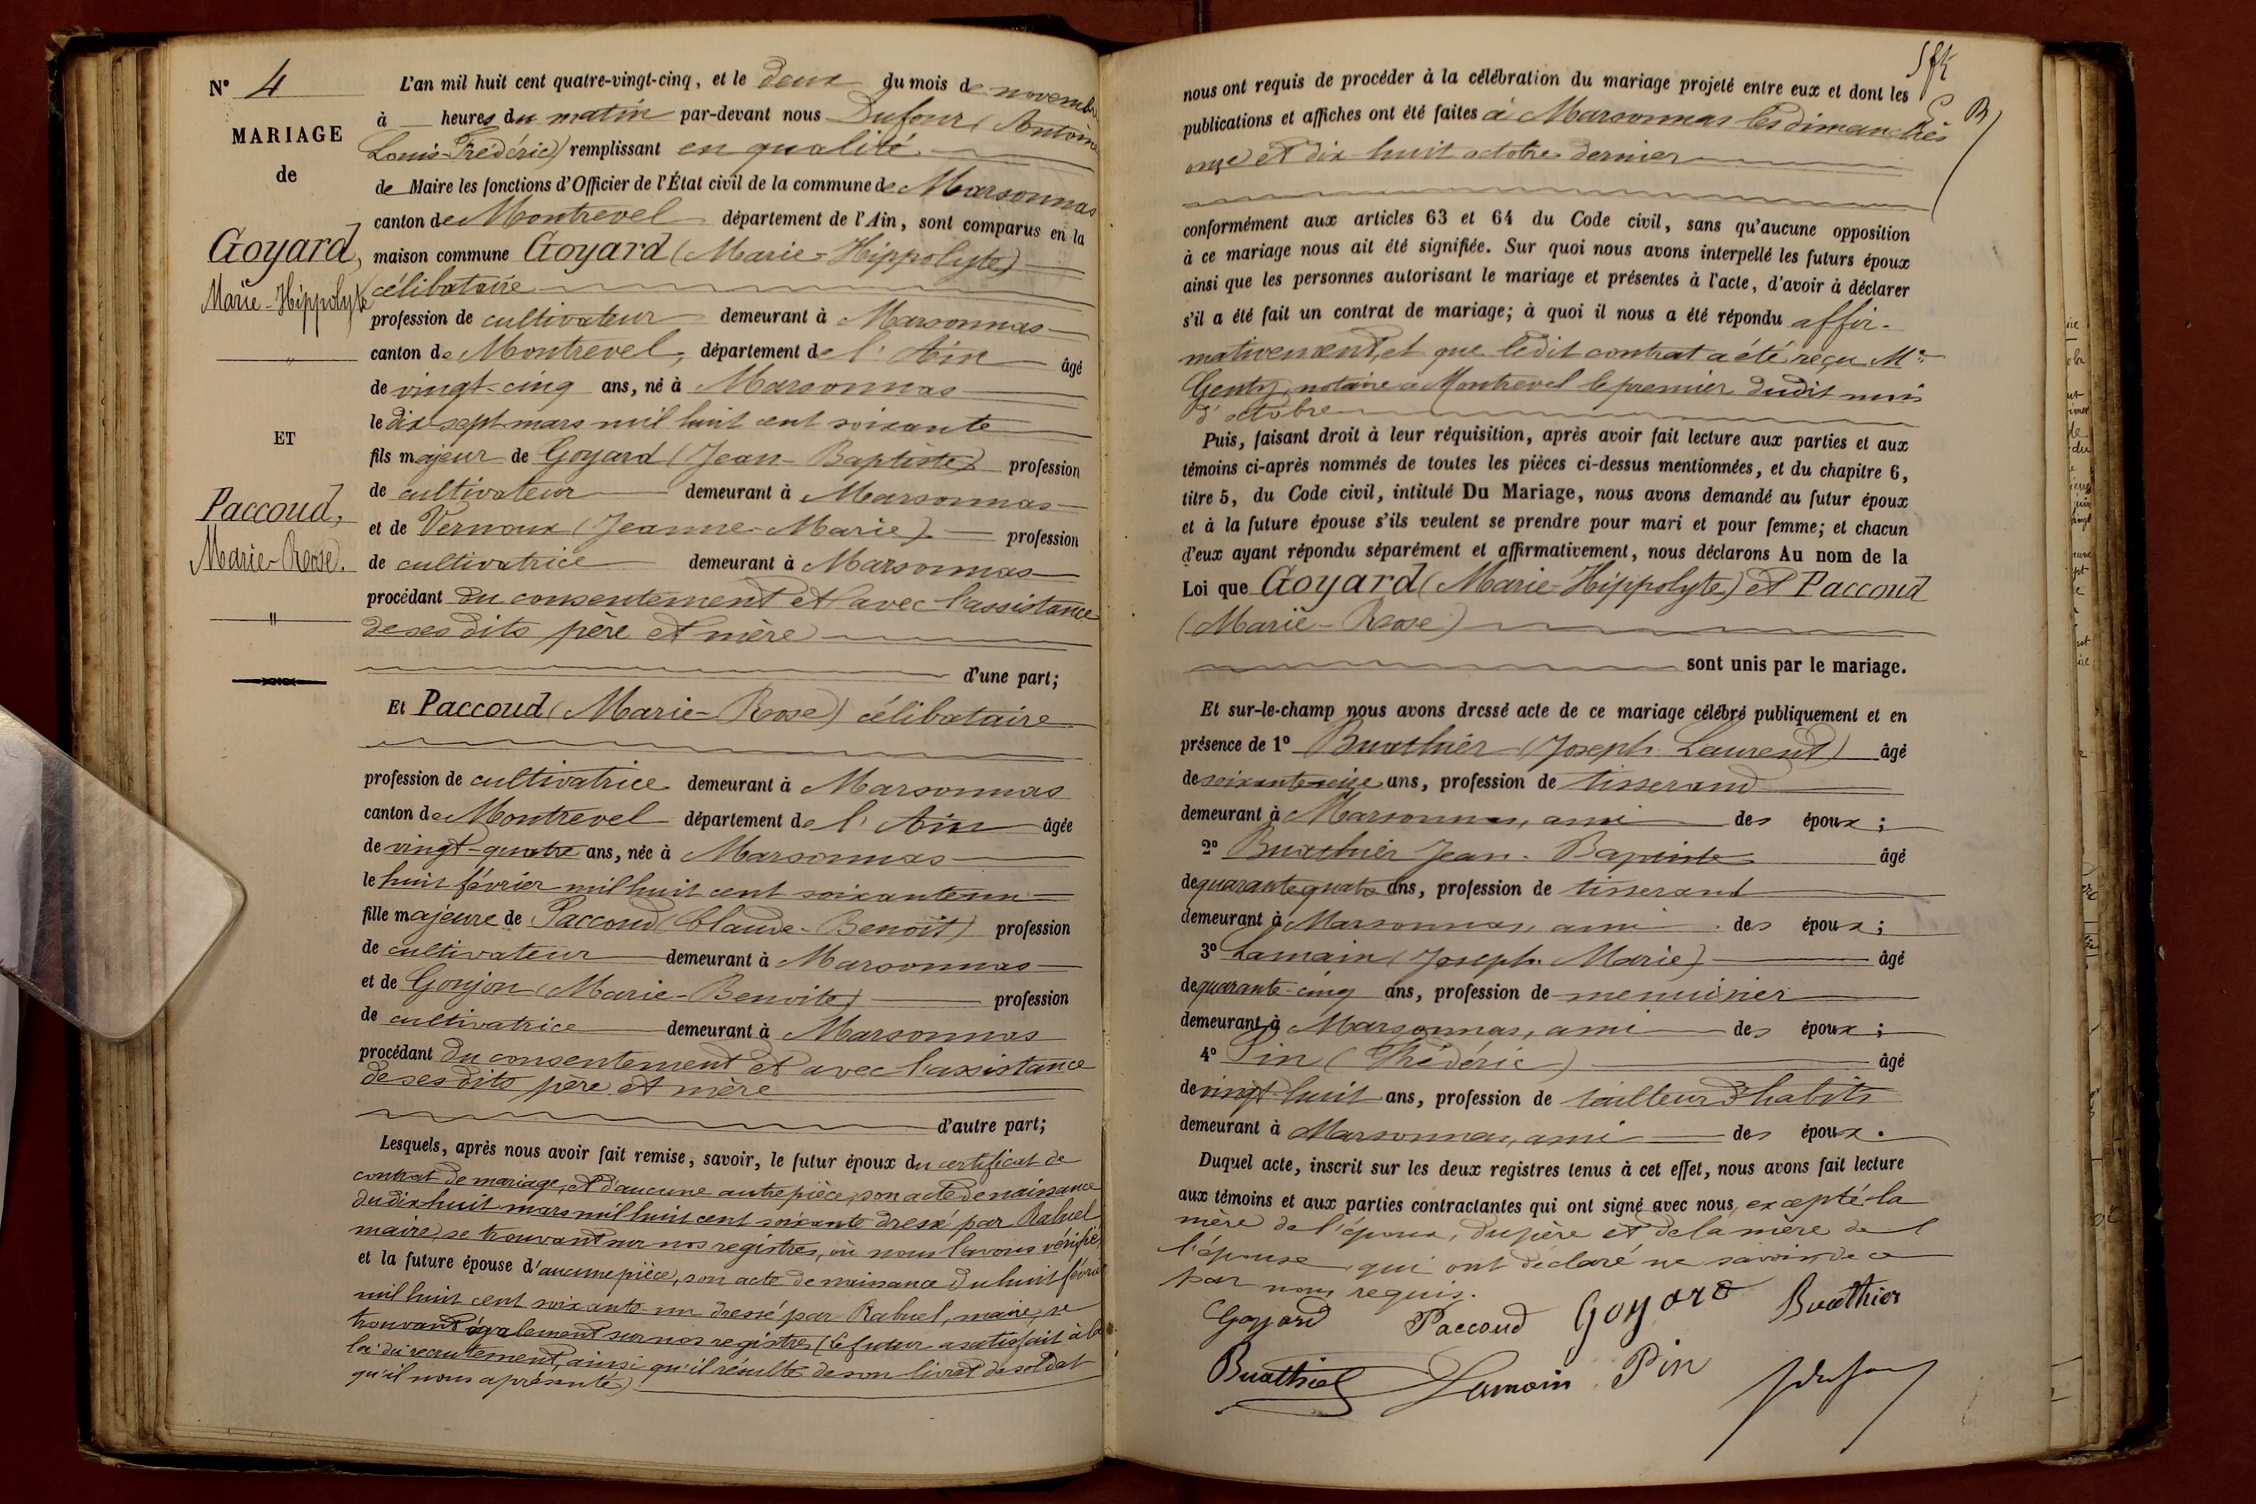 N° 4
MARIAGE
de
Goyard,
Marie-Hippolyte
ET
Paccoud,
Marie-Rose.
L'an mil huit cent quatre-vingt-cinq, et le deux du mois de novembre
à heures du matin par-devant nous Dufour (Antoine
Louis-Frédéric) remplissant en qualité
de Maire les fonctions d'Officier de l'État civil de la commune de Marsonnas
canton de Montrevel département de l'Ain, sont comparus en la
maison commune Goyard (Marie-Hippolyte)
célibataire
profession de cultivateur demeurant à Marsonnas
canton de Montrevel, département de l'Ain âgé
de vingt-cinq ans, né à Marsonnas
le dix sept mars mil huit cent soixante
fils majeur de Goyard (Jean-Baptiste) profession
de cultivateur demeurant à Marsonnas
et de Vernoux (Jeanne-Marie) profession
de cultivatrice demeurant à Marsonnas
procédant du consentement et avec l'assistance
de ses dits père et mère
d'une part;
Et Paccoud (Marie-Rose) célibataire
profession de cultivatrice demeurant à Marsonnas
canton de Montrevel département de l'Ain âgée
de vingt-quatre ans, née à Marsonnas
le huit février mil huit cent soixante un
fille majeure de Paccoud (Claude-Benoit) profession
de cultivateur demeurant à Marsonnas
et de Goujon (Marie-Benoite) profession
de cultivatrice demeurant à Marsonnas
procédant du consentement et avec l'assistance
de ses dits père et mère
d'autre part;
Lesquels, après nous avoir fait remise, savoir, le futur époux du certificat de
contrat de mariage, et d'aucune autre pièce, son acte de naissance
du dix huit mars mil huit cent soixante dressé par Rahuel
maire, se trouvant sur nos registres, où nous l'avons vérifié,
et la future épouse d'aucune pièce, son acte de naissance du huit février
mil huit cent soixante un dressé par Rahuel, maire, se
trouvant également sur nos registres (Le futur a satisfait à la
loi du recrutement, ainsi qu'il résulte de son livret de soldat
qu'il nous a présenté)
nous ont requis de procéder à la célébration du mariage projeté entre eux et dont les
publications et affiches ont été faites à Marsonnas les dimanches
onze et dix-huit octobre dernier
conformément aux articles 63 et 64 du Code civil, sans qu'aucune opposition
à ce mariage nous ait été signifiée. Sur quoi nous avons interpellé les futurs époux
ainsi que les personnes autorisant le mariage et présentes à l'acte, d'avoir à déclarer
s'il a été fait un contrat de mariage; à quoi il nous a été répondu affir-
mativement, et que ledit contrat a été reçu Me
Genty, notaire à Montrevel le premier dudit mois
d'octobre
Puis, faisant droit à leur réquisition, après avoir fait lecture aux parties et aux
témoins ci-après nommés de toutes les pièces ci-dessus mentionnées, et du chapitre 6,
titre 5, du Code civil, intitulé Du Mariage, nous avons demandé au futur époux
et à la future épouse s'ils veulent se prendre pour mari et pour femme; et chacun
d'eux ayant répondu séparément et affirmativement, nous déclarons Au nom de la
Loi que Goyard (Marie-Hippolyte) et Paccoud
(Marie-Rose)
sont unis par le mariage.
Et sur-le-champ nous avons dressé acte de ce mariage célébré publiquement et en
présence de 1° Buathier (Joseph Laurent) âgé
de ans, profession de tisserand
demeurant à Marsonnas, ami des époux;
2° Buathier Jean-Baptiste âgé
de quarante quatre ans, profession de tisserand
demeurant à Marsonnas, ami des époux;
3° Lamain (Joseph Marie) âgé
de quarante-cinq ans, profession de menuisier
demeurant à Marsonnas, ami des époux;
4° Pin (Frédéric) âgé
de vingt-huit ans, profession de tailleur d'habits
demeurant à Marsonnas, ami des époux.
Duquel acte, inscrit sur les deux registres tenus à cet effet, nous avons fait lecture
aux témoins et aux parties contractantes qui ont signé avec nous, excepté la
mère de l'époux, du père et de la mère de
l'épouse, qui ont déclaré ne savoir, de ce
par nous requis.
Goyard Paccoud Goyard Buathier
Buathier Lamain Pin